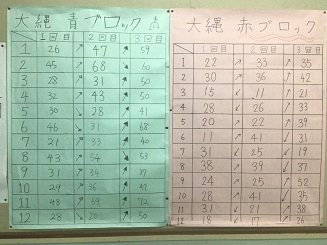 大縄 青ブロック
1回目 2回目 3回目
1 26 ↗ 47 ↗ 59
2 45 ↗ 68 ↘ 60
3 28 ↗ 31 ↗ 50
4 32 ↗ 43 ↗ 50
5 30 ↘ 28 ↗ 41
6 46 ↘ 31 ↗ 68
7 21 ↗ 33 ↗ 40
8 43 ↗ 54 ↘ 53
9 31 ↗ 34 ↗ 37
10 29 ↗ 36 ↗ 47
11 48 ↗ 69 ↗ 72
12 28 ↘ 20 ↗ 50
大縄 赤ブロック
1回目 2回目 3回目
1 22 ↗ 33 ↗ 35
2 30 ↗ 36 ↗ 42
3 15 ↙ 11 ↗ 21
4 28 ↙ 26 ↗ 33
5 20 ↗ 22 ↗ 39
6 11 ↗ 41 ↙ 31
7 31 ↙ 25 ↙ 19
8 38 ↗ 39 ↙ 37
9 24 ↗ 25 ↗ 52
10 28 ↗ 41 ↙ 35
11 31 ↙ 21 ↗ 38
12 18 ↙ 17 ↗ 26